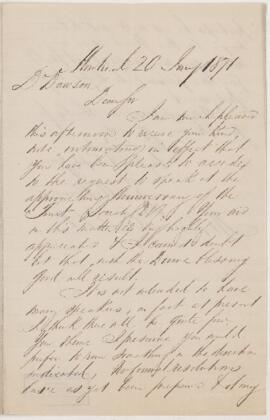 Montreal 20 Jany 1871
Dr Dawson
Dear Sir
I am much pleased
this afternoon to receive your kind
note, intimating in effect that
you have been pleased to accede
to the request to speak at the
approaching Anniversary of the
Society. Your aid
in this matter is highly
appreciated & I cannot doubt
but that, with the Divine blessing
good will result.
It is not intended to have
many speakers, in fact at present
I think there will be quite few.
You I presume you would
prefer to have something in the direction
indicated, no formal resolutions
have as yet been prepared & I may